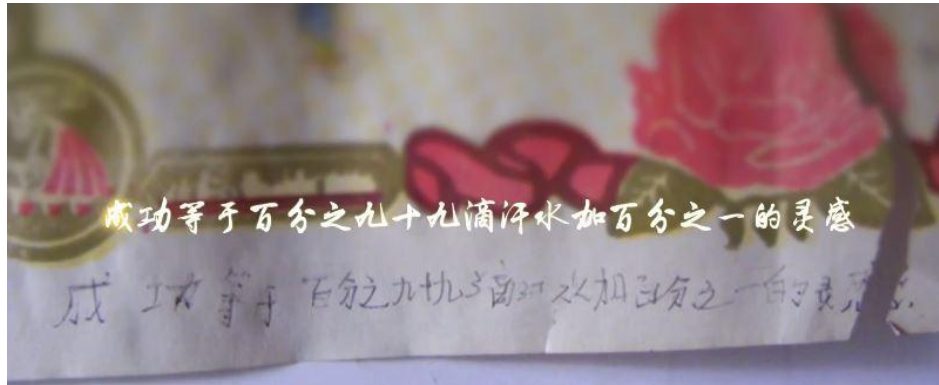 成功等于百分之九十九滴汗水加百分之一的灵感
成功等于百分之九十九滴汗水加百分之一的灵感